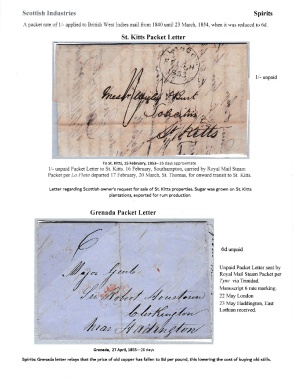 Scottish Industries
Spirits
A packet rate of 1/- applied to British West Indies mail from 1840 until 23 March, 1854, when it was reduced to 6d.
St. Kitts Packet Letter
1/- unpaid
St Kitts
To St. Kitts, 15 February, 1853- 26 days approximate
1/- unpaid Packet Letter to St. Kitts. 16 February, Southampton, carried by Royal Mail Steam
Packet per La Plata departed 17 February, 20 March, St. Thomas, for onward transit to St. Kitts.
Letter regarding Scottish owner's request for sale of St. Kitts properties. Sugar was grown on St. Kitts
plantations, exported for rum production.
Grenada Packet Letter
6
Major Gent
Sir Robert Houstoun
Clerkington
Near Haddington
6d unpaid
Unpaid Packet Letter sent by
Royal Mail Steam Packet per
Tyne via Trinidad.
Manuscript 6 rate marking
22 May London
23 May Haddington, East
Lothian received.
Grenada, 27 April, 1855- 26 days
Spirits: Grenada letter relays that the price of old copper has fallen to 8d per pound, this lowering the cost of buying old stills.